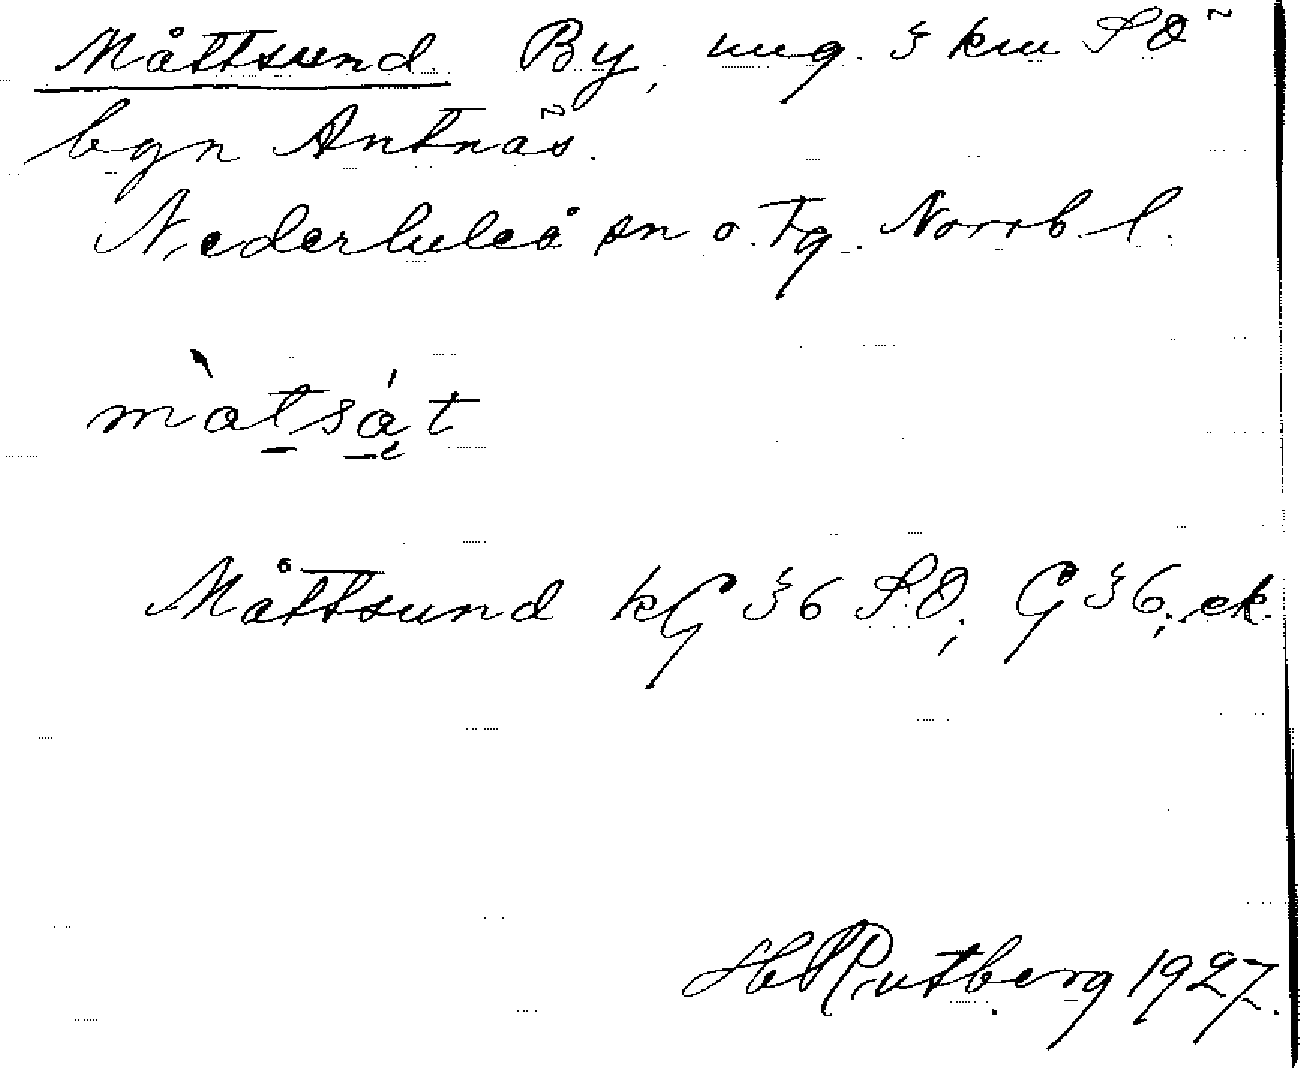 Måttsund By, ung. 3 km SÖ
bgn Antnäs.
Nederluleå sn o. Tg. Norrb. l.
màtsát
Måttsund kG 36 S.O., G 36, ek.
H Rutberg 1927.